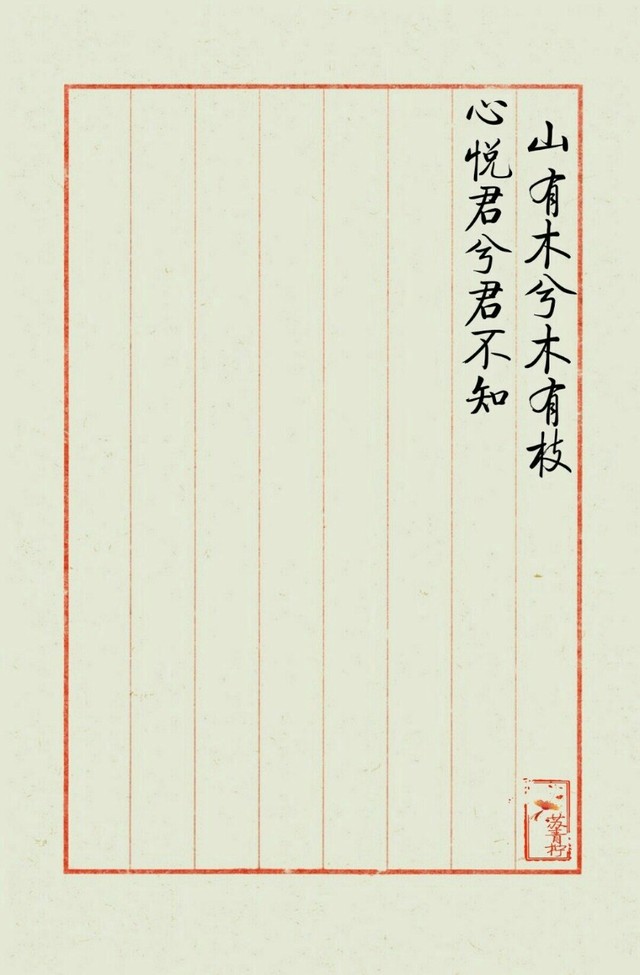 山有木兮木有枝
心悦君兮君不知
苏青柠